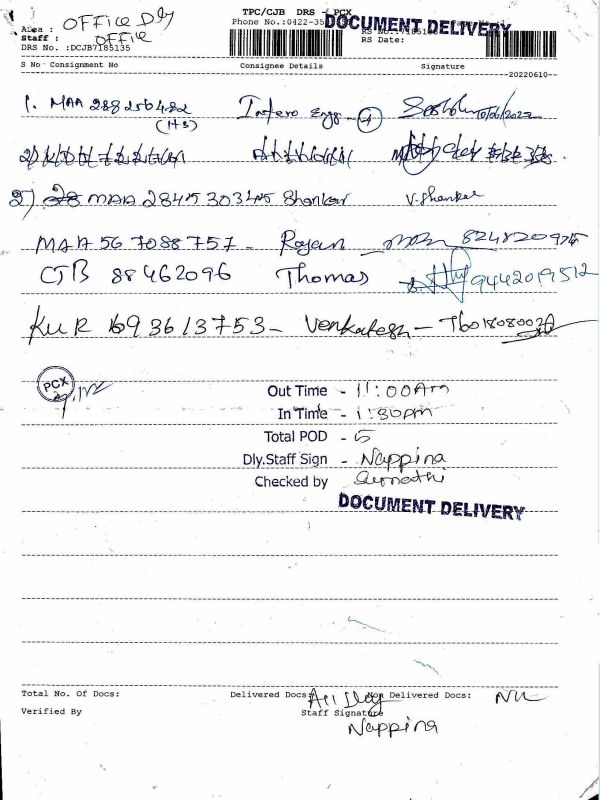 TPC/CJB DRS - PCX
Area : OFFICE Dly
Phone No.:0422-35
DOCUMENT DELIVERY
Staff : OFFICE
RS No.:7185135
DRS No. :DCJB7185135
RS Date:
S No Consignment No Consignee Details Signature
--20220610--
1. MAA 288256482 Infero Engg 10/06/2022
(H3)
2) MAA 284530345 Shankar V. Shankar
MAA 567088757 - Rajan 8248209754
CJB 88462096 Thomas 9442019512
KUR 693613753 - Venkatesh -
PCX
Out Time - 11:00Am
In Time - 1:30pm
Total POD - 5
Dly.Staff Sign - Nappina
Checked by
DOCUMENT DELIVERY
Total No. Of Docs: Delivered Docs: All Dly Non Delivered Docs: NIL
Verified By Staff Signature
Nappina